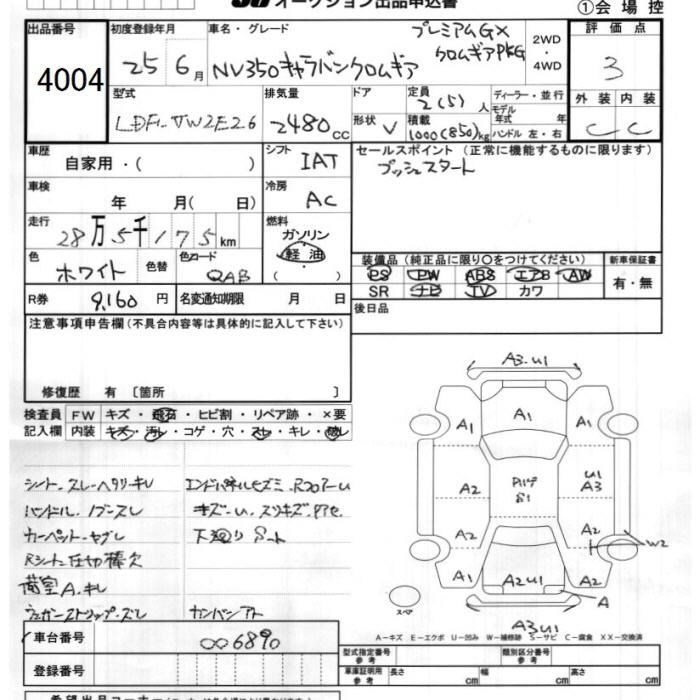 オークション出品申込書
①会場控
出品番号 初度登録年月 車名・グレード 評価点
4004 25年6月 NV350キャラバンクロムギア プレミアムGX クロムギアPKG 2WD・4WD 3
型式 排気量 ドア 定員 ディーラー・並行 外装 内装
LDF-VW2E26 2480cc 形状 V 2(5)人 モデル年式 年 C C
積載 1000(850)kg ハンドル 左・右
車歴 シフト セールスポイント (正常に機能するものに限ります)
自家用・( ) IAT プッシュスタート
車検 冷房
年 月( 日) AC
走行 燃料
28万5千175km ガソリン
軽油
( )
色 色替 色コード
ホワイト QAB
装備品 (純正品に限り○をつけてください) 新車保証書
PS PW ABS エアB AW 有・無
SR ナビ TV カワ
R券 9,160円 名変通知期限 月 日 後日品
注意事項申告欄 (不具合内容等は具体的に記入して下さい)
修復歴 有 〔箇所 〕
検査員 FW キズ・飛石・ヒビ割・リペア跡・×要
記入欄 内装 キズ・汚レ・コゲ・穴・スレ・キレ・破レ
シート スレ・ヘタリ・キレ エンドパネルキズミ
ハンドル・ノブスレ キズ・u、スリキズ
カーペット・ヤブレ 下廻りサビ
Rシート仕切棒欠
荷室A.キレ
ウェザーストリップズレ カンバンアト
A3.u1
A1 A1 A1
A2 u1 A3
A2 A2 W2
A1 A2u1 A2 A
A3u1
スペア
A−キズ E−エクボ U−凹み W−補修跡 S−サビ C−腐食 XX−交換済
車台番号 006890
登録番号
型式指定番号 参考 類別区分番号 参考
車庫証明用 参考 長さ cm 幅 cm 高さ cm